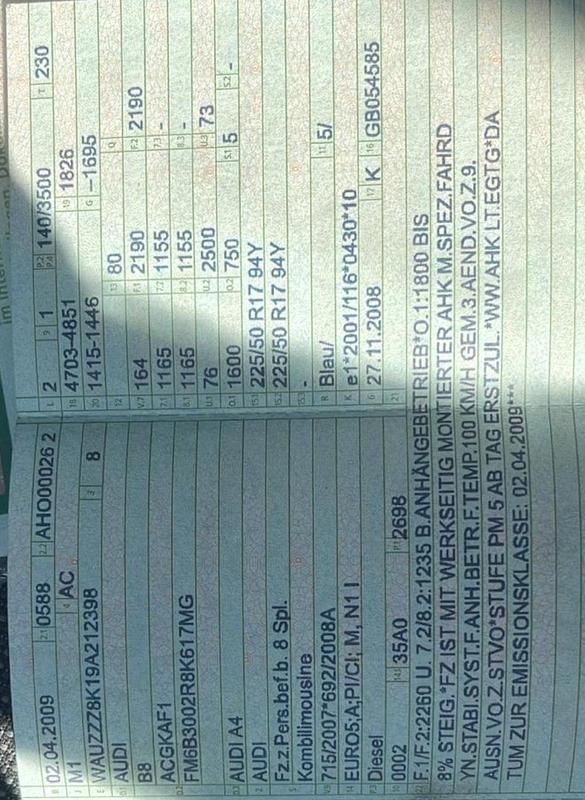 B 02.04.2009 2.1 0588 2.2 AHO000026 2
J M1 4 AC
E WAUZZZ8K19A212398 3 8
D.1 AUDI
B8
ACGKAF1
D.2 FM6B3002R8K617MG
D.3 AUDI A4
2 AUDI
5 Fz.z.Pers.bef.b. 8 Spl.
Kombilimousine
V.9 715/2007*692/2008A
14 EURO5;A;PI/CI; M, N1 I
P.3 Diesel
10 0002 14.1 35A0 P.1 2698
L 2 9 1 P.2 P.4 140/3500 T 230
18 4703-4851 19 1826
20 1415-1446 G –1695
12 13 80 Q
V.7 164 F.1 2190 F.2 2190
7.1 1165 7.2 1155 7.3 -
8.1 1165 8.2 1155 8.3 -
U.1 76 U.2 2500 U.3 73
O.1 1600 O.2 750 S.1 5 S.2 -
15.1 225/50 R17 94Y
15.2 225/50 R17 94Y
15.3 -
R Blau/ 11 5/
K e1*2001/116*0430*10
6 27.11.2008 17 K 16 GB054585
21
22 F.1/F.2:2260 U. 7.2/8.2:1235 B.ANHÄNGEBETRIEB*O.1:1800 BIS
8% STEIG.*FZ IST MIT WERKSEITIG MONTIERTER AHK M.SPEZ.FAHRD
YN.STABI.SYST.F.ANH.BETR.F.TEMP.100 KM/H GEM.3.AEND.VO.Z.9.
AUSN.VO.Z.STVO*STUFE PM 5 AB TAG ERSTZUL.*WW.AHK LT.EGTG*DA
TUM ZUR EMISSIONSKLASSE: 02.04.2009***